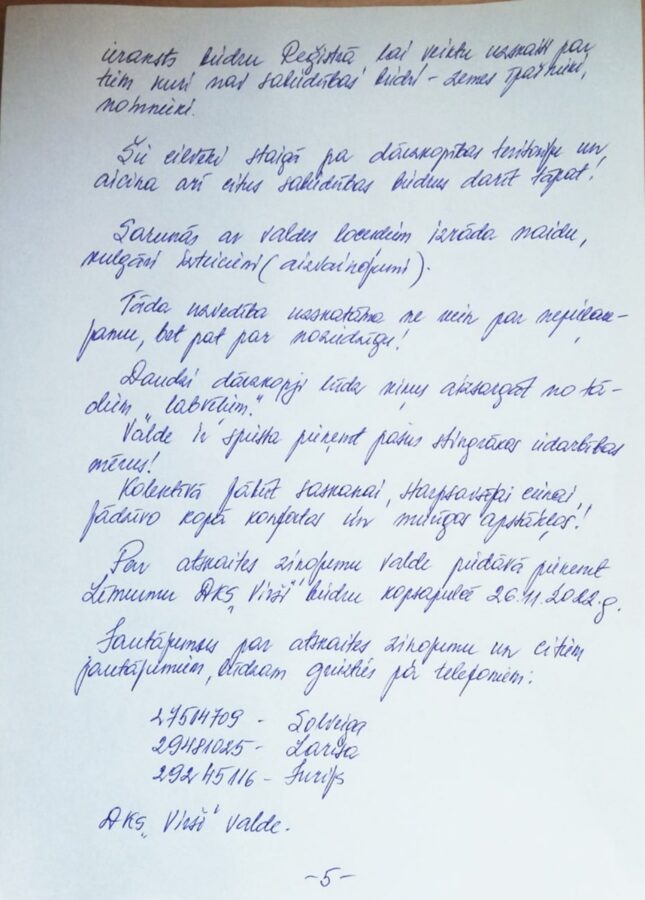 ieraksts biedru Reģistrā lai veiktu uzskaiti par
tiem kuri nai sabiedrības biedri - zemes īpašnieki,
nomnieki.
Šie cilvēki staigā pa dārzkopības teritoriju un
aicina arī citus sabiedrības biedrus darīt tāpat!
Sarunās ar valdes locekļiem izrāda naidu,
vulgāri izteicieni (aizvainojumi).
Tāda uzvedība uzskatāma ne vien par nepieņe-
jamu, bet pat par noziedzīgu!
Daudzi dārzkopji lūdz viņus aizsargāt no tā-
diem „labvēļiem."
Valde ir spiesta pieņemt pašus stingrākos iedarbības
mērus!
Kolektīvā jābūt saskaņai, starpsavstējai cieņai,
jādzīvo kopā komfortos un mierīgos apstākļos!
Par atskaites ziņojumu valde piedāvā pieņemt
Lēmumu DKS „Virši" biedru kopsapulcē 26.11.2022.g.
Jautājumos par atskaites ziņojumu un citiem
jautājumiem, lūdzam griezties pa telefoniem:
27514709 - Solveiga
29481025 - Larisa
29245116 - Jurijs
DKS „Virši" valde.
-5-